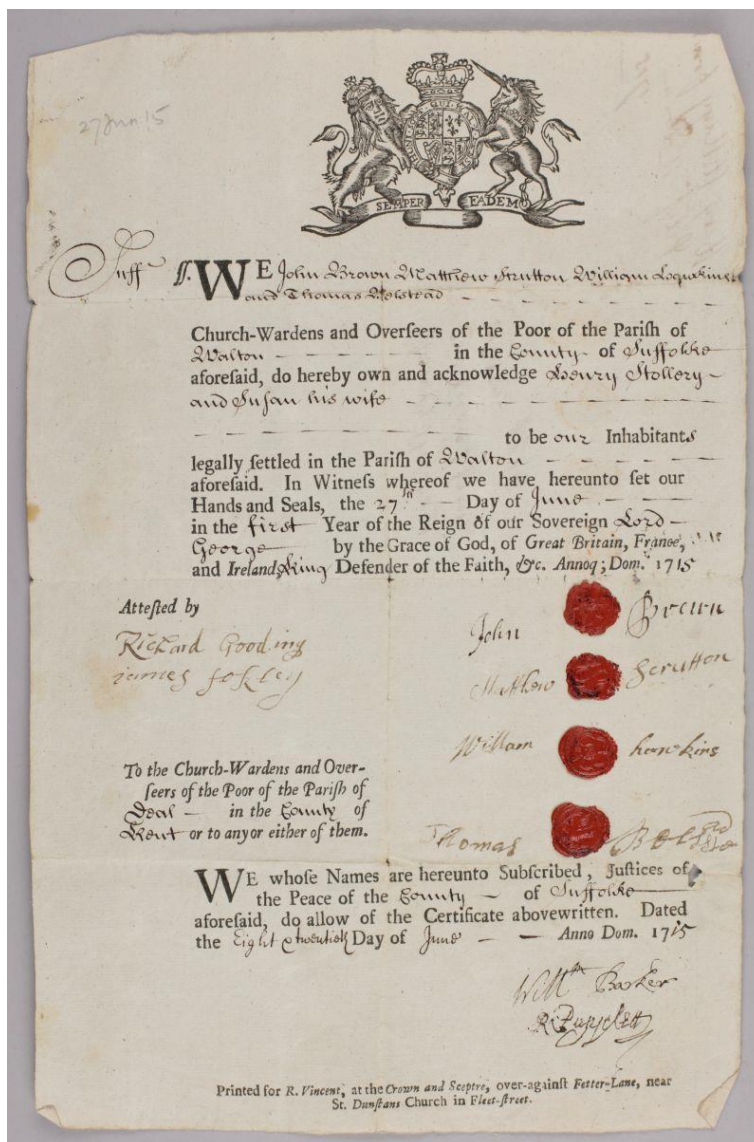 27 Jun. 15
HONI SOIT QUI MAL Y
SEMPER EADEM
Suff ſſ. WE John Brown Matthew Scrutton William
and Thomas Belstead
Church-Wardens and Overſeers of the Poor of the Pariſh of
Walton in the County of Suffolke
aforeſaid, do hereby own and acknowledge Henry Stollery
and Suſan his wife
to be our Inhabitants
legally ſettled in the Pariſh of Walton
aforeſaid. In Witneſs whereof we have hereunto ſet our
Hands and Seals, the 27th Day of June
in the first Year of the Reign of our Sovereign Lord
George by the Grace of God, of Great Britain, France,
and Ireland, King Defender of the Faith, &c. Annoq; Dom. 1715
Atteſted by
Richard Gooding
James
John Brown
Mathew Scrutton
William hawkins
Thomas
To the Church-Wardens and Over-
ſeers of the Poor of the Pariſh of
Deal in the County of
Kent or to any or either of them.
WE whoſe Names are hereunto Subſcribed, Juſtices of
the Peace of the County of Suffolke
aforeſaid, do allow of the Certificate abovewritten. Dated
the Eight & twentieth Day of June Anno Dom. 1715
Willm Barker
Printed for R. Vincent, at the Crown and Sceptre, over-againſt Fetter-Lane, near
St. Dunſtans Church in Fleet-ſtreet.